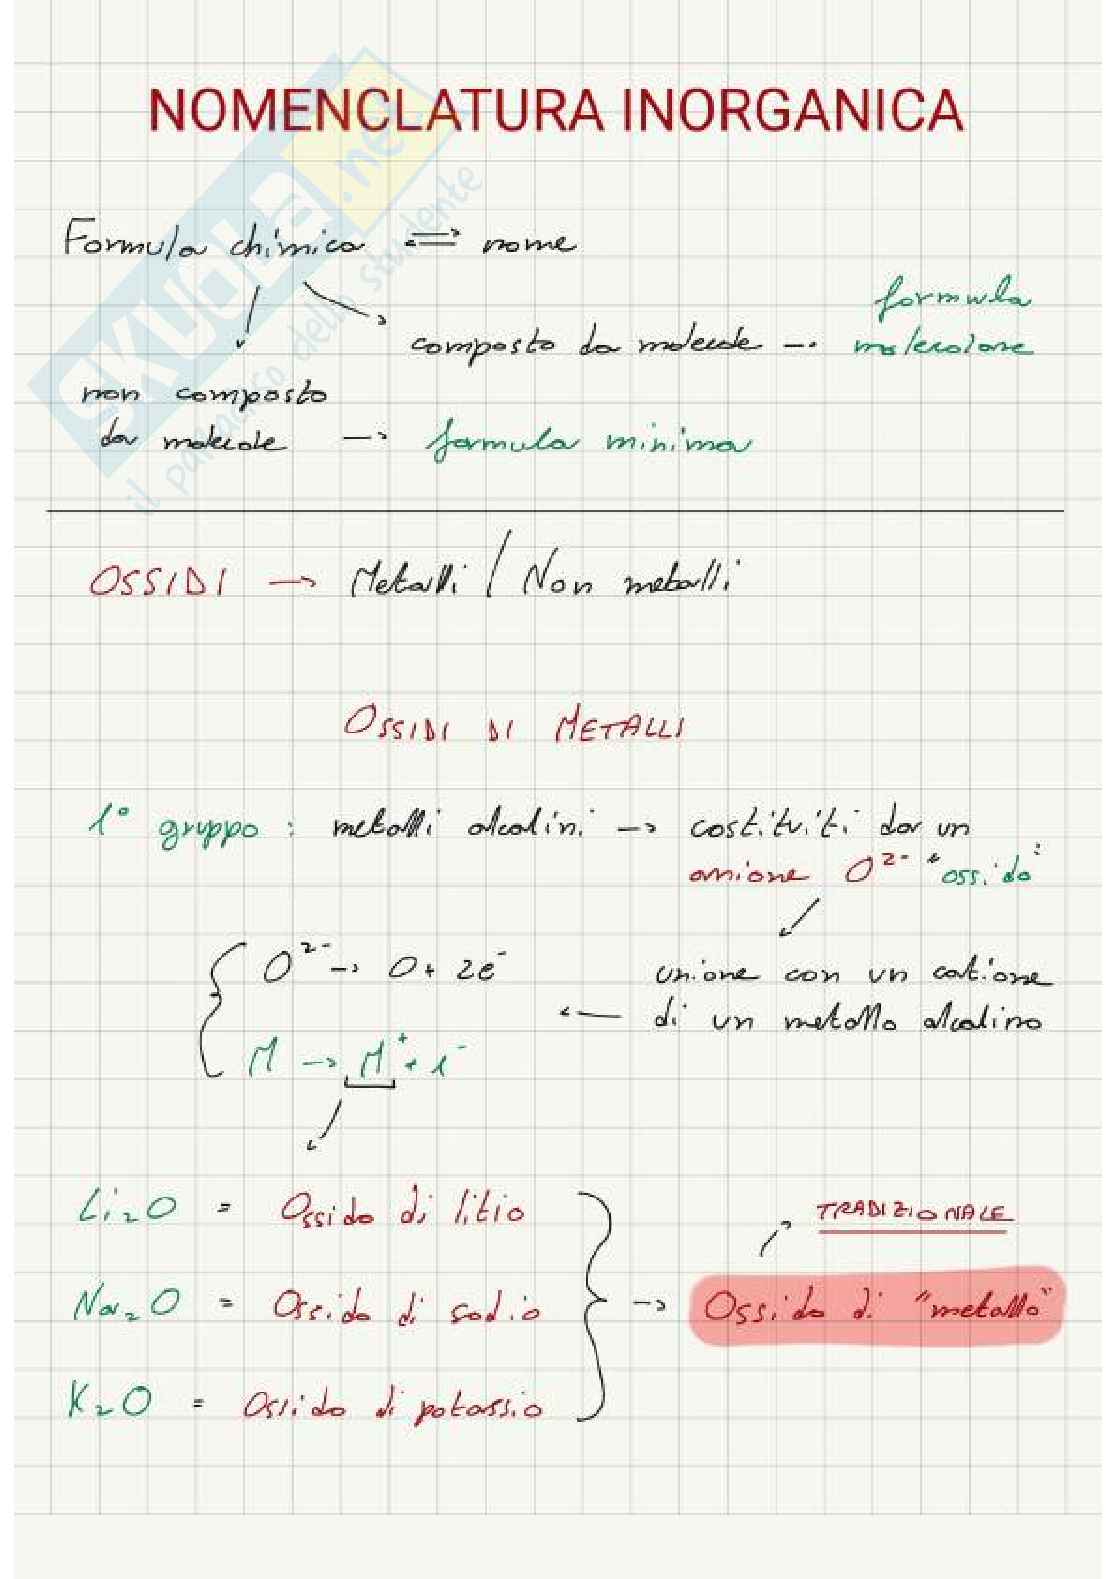 NOMENCLATURA INORGANICA
SKUOLA.net
il paradiso dello studente
Formula chimica ⇌ nome
formula
composto da molecole → molecolare
non composto
da molecole → formula minima
OSSIDI → Metalli / Non metalli
OSSIDI DI METALLI
1° gruppo : metalli alcalini → costituiti da un
anione O²⁻ "ossido"
O²⁻ → O + 2e⁻ unione con un catione
← di un metallo alcalino
M → M⁺ + e⁻
Li₂O = Ossido di litio
TRADIZIONALE
Na₂O = Ossido di sodio → Ossido di "metallo"
K₂O = Ossido di potassio